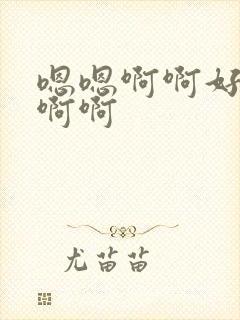 嗯嗯啊啊好
啊啊
尤苗苗